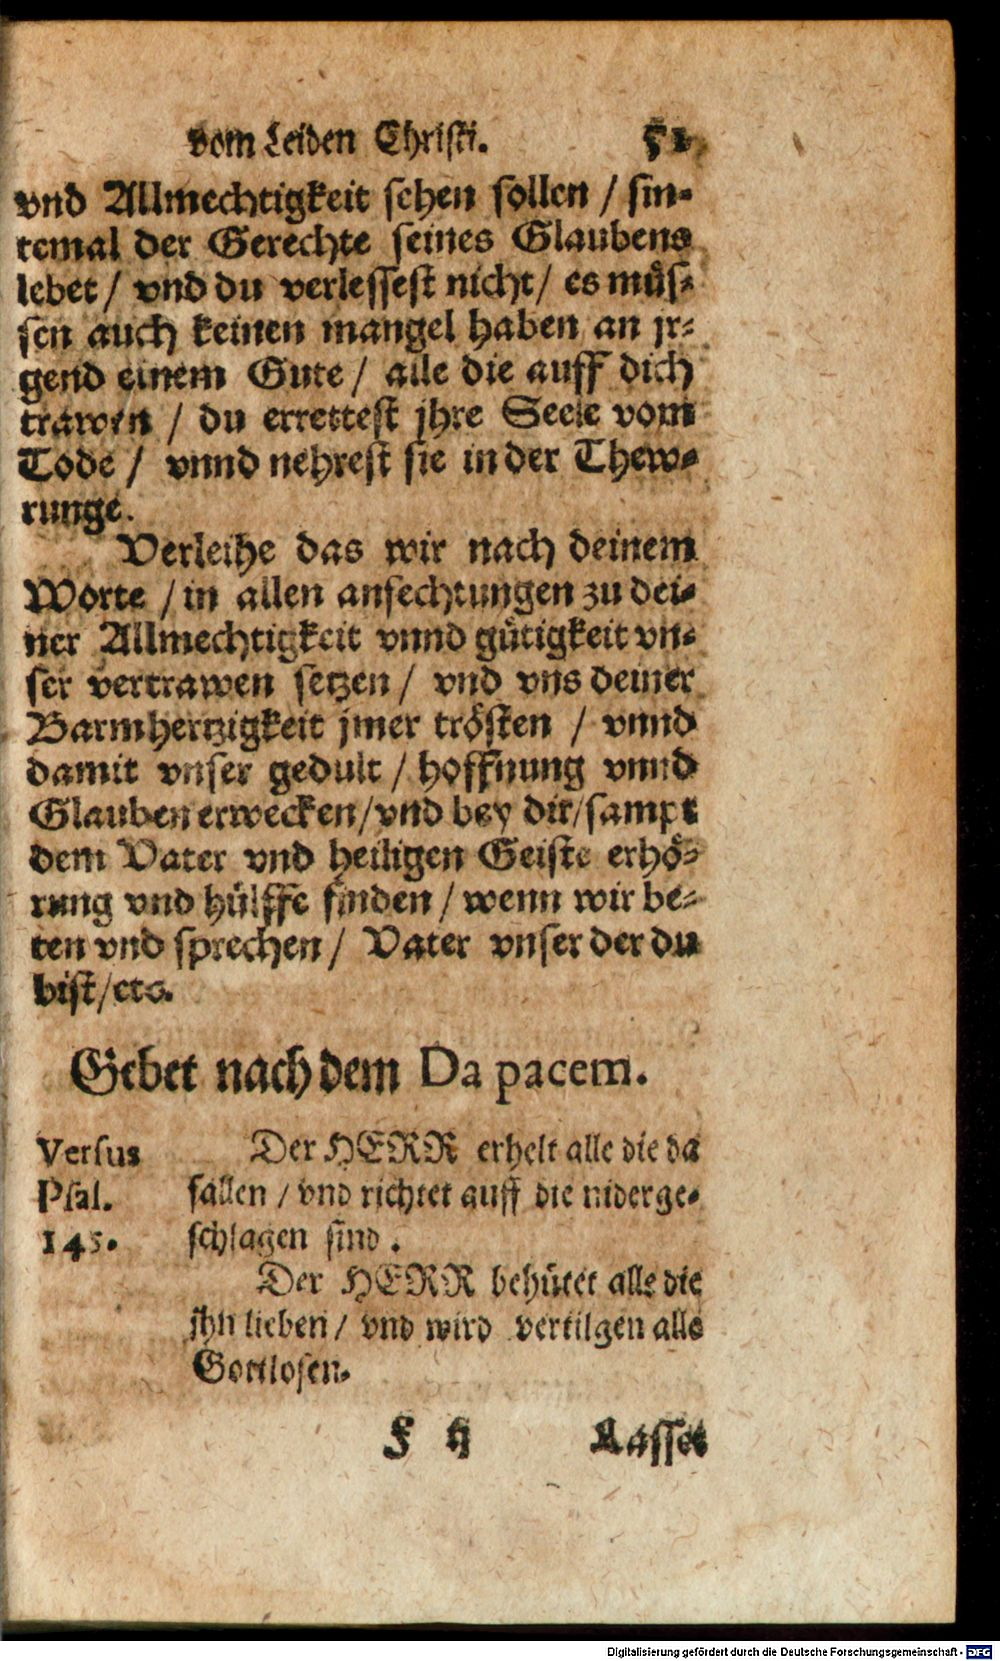 vom Leiden Christi. 51
vnd Allmechtigkeit sehen sollen / sin-
temal der Gerechte seines Glaubens
lebet / vnd du verlessest nicht / es müs-
sen auch keinen mangel haben an jr-
gend einem Gute / alle die auff dich
trawen / du errettest jhre Seele vom
Tode / vnnd nehrest sie in der Thew-
runge.
Verleihe das wir nach deinem
Worte / in allen anfechtungen zu dei-
ner Allmechtigkeit vnnd gütigkeit vn-
ser vertrawen setzen / vnd vns deiner
Barmhertzigkeit jmer trösten / vnnd
damit vnser gedult / hoffnung vnnd
Glauben erwecken / vnd bey dir / sampt
dem Vater vnd heiligen Geiste erhö-
rung vnd hülffe finden / wenn wir be-
ten vnd sprechen / Vater vnser der du
bist / etc.
Gebet nach dem Da pacem.
Versus
Psal.
145.
Der HERR erhelt alle die da
fallen / vnd richtet auff die niderge-
schlagen sind.
Der HERR behütet alle die
jhn lieben / vnd wird vertilgen alle
Gottlosen.
F ij Lasset
Digitalisierung gefördert durch die Deutsche Forschungsgemeinschaft - DFG